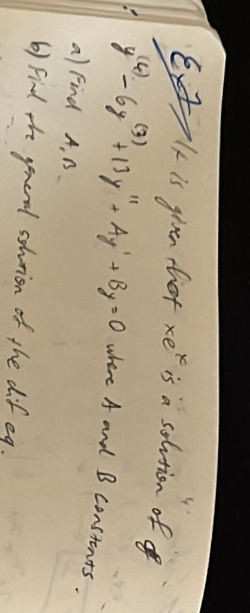 Ex/ It is given that xeˣ is a solution of
y⁽⁴⁾ - 6y⁽³⁾ + 13y'' + Ay' + By = 0 where A and B constants.
a) Find A, B
b) Find the general solution of the dif eq.